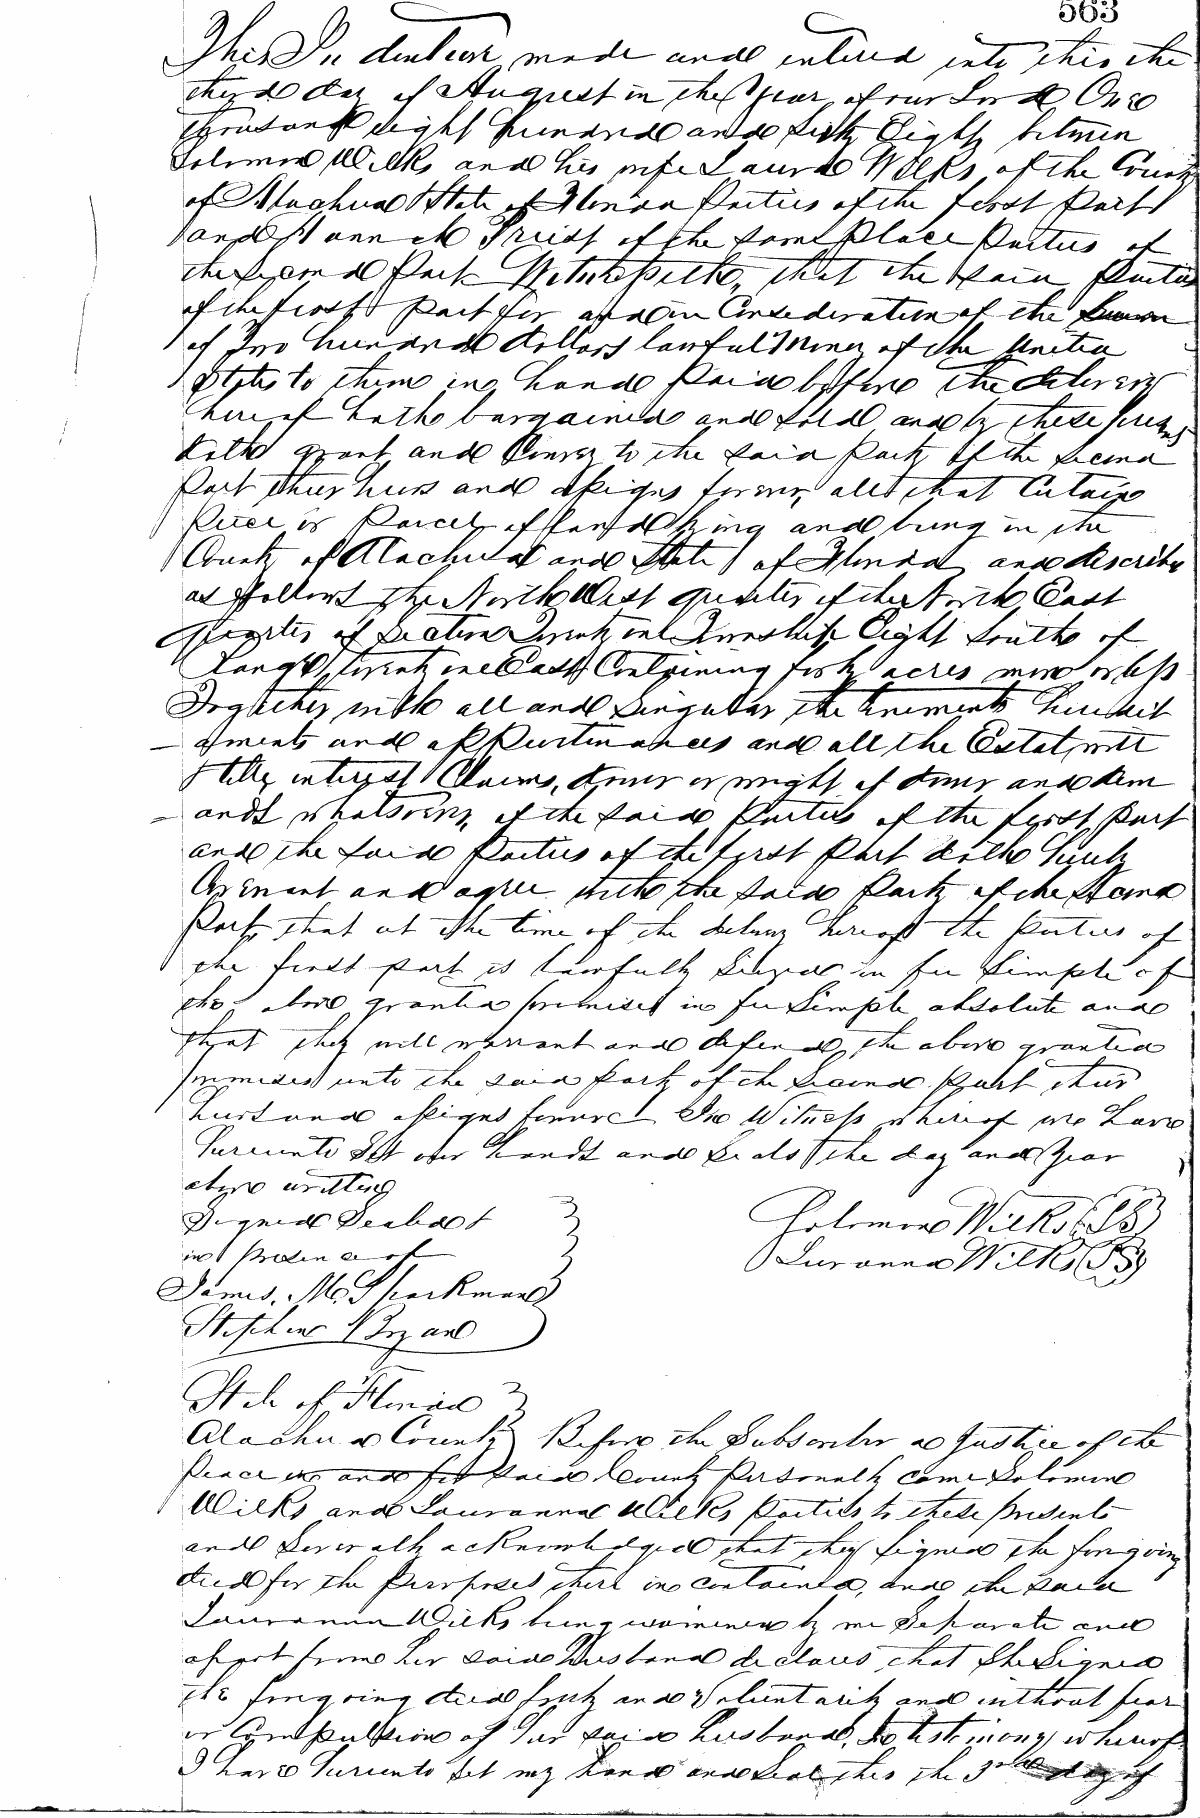 563
This Indenture made and entered into this the
third day of August in the Year of our Lord One
thousand eight hundred and sixty Eight between
Solomon Wilks and his wife Laura Wilks of the County
of Alachua State of Florida Parties of the first Part
and Hannah Priest of the same Place Parties of
the second Part Witnesseth, that the said Parties
of the first part for and in Consideration of the Sum
of Two hundred dollars lawful Money of the United
States to them in hand Paid before the delivery
hereof hath bargained and sold and by these presents
doth grant and Convey to the said Party of the second
Part their heirs and assigns forever all that Certain
Piece or Parcel of land lying and being in the
County of Alachua and State of Florida and describe
as follows the North West quarter of the North East
quarter of Section Twenty one Township Eight South of
Range twenty one East Containing forty acres more or less
Together with all and Singular the tenements heredit
aments and appurtinances and all the Estate
title interest Claims, dower or right of dower and dem
ands whatsoever, of the said Parties of the first Part
and the said Parties of the first Part doth hereby
Covenant and agree with the said Party of the second
Part, that at the time of the delivery hereof the Parties of
the first part is lawfully Seized in fee Simple of
the above granted premises in fee Simple absolute and
that they will warrant and defend the above granted
premises unto the said Party of the Second Part their
heirs and assigns forever In Witness whereof we have
hereunto Set our hands and Seals the day and Year
above writting
Signed Sealed
in presence of
James. M. Sparkman
Stephen Bryan
Solomon Wilks (LS)
Luranna Wilks (LS)
State of Florida
Alachua County Before the Subscriber a Justice of the
Peace in and for said County Personally came Solomon
Wilks and Lauranna Wilks Parties to these presents
and Severally acknowledged that they Signed the foregoing
deed for the Purposes there in contained, and the said
Lauranna Wilks being by me Separate and
apart from her said husband declares that She Signed
the foregoing deed freely and voluntarily and without fear
or Compulsion of her said husband, In testimony whereof
I have hereunto Set my hand and Seal this the 3rd day of